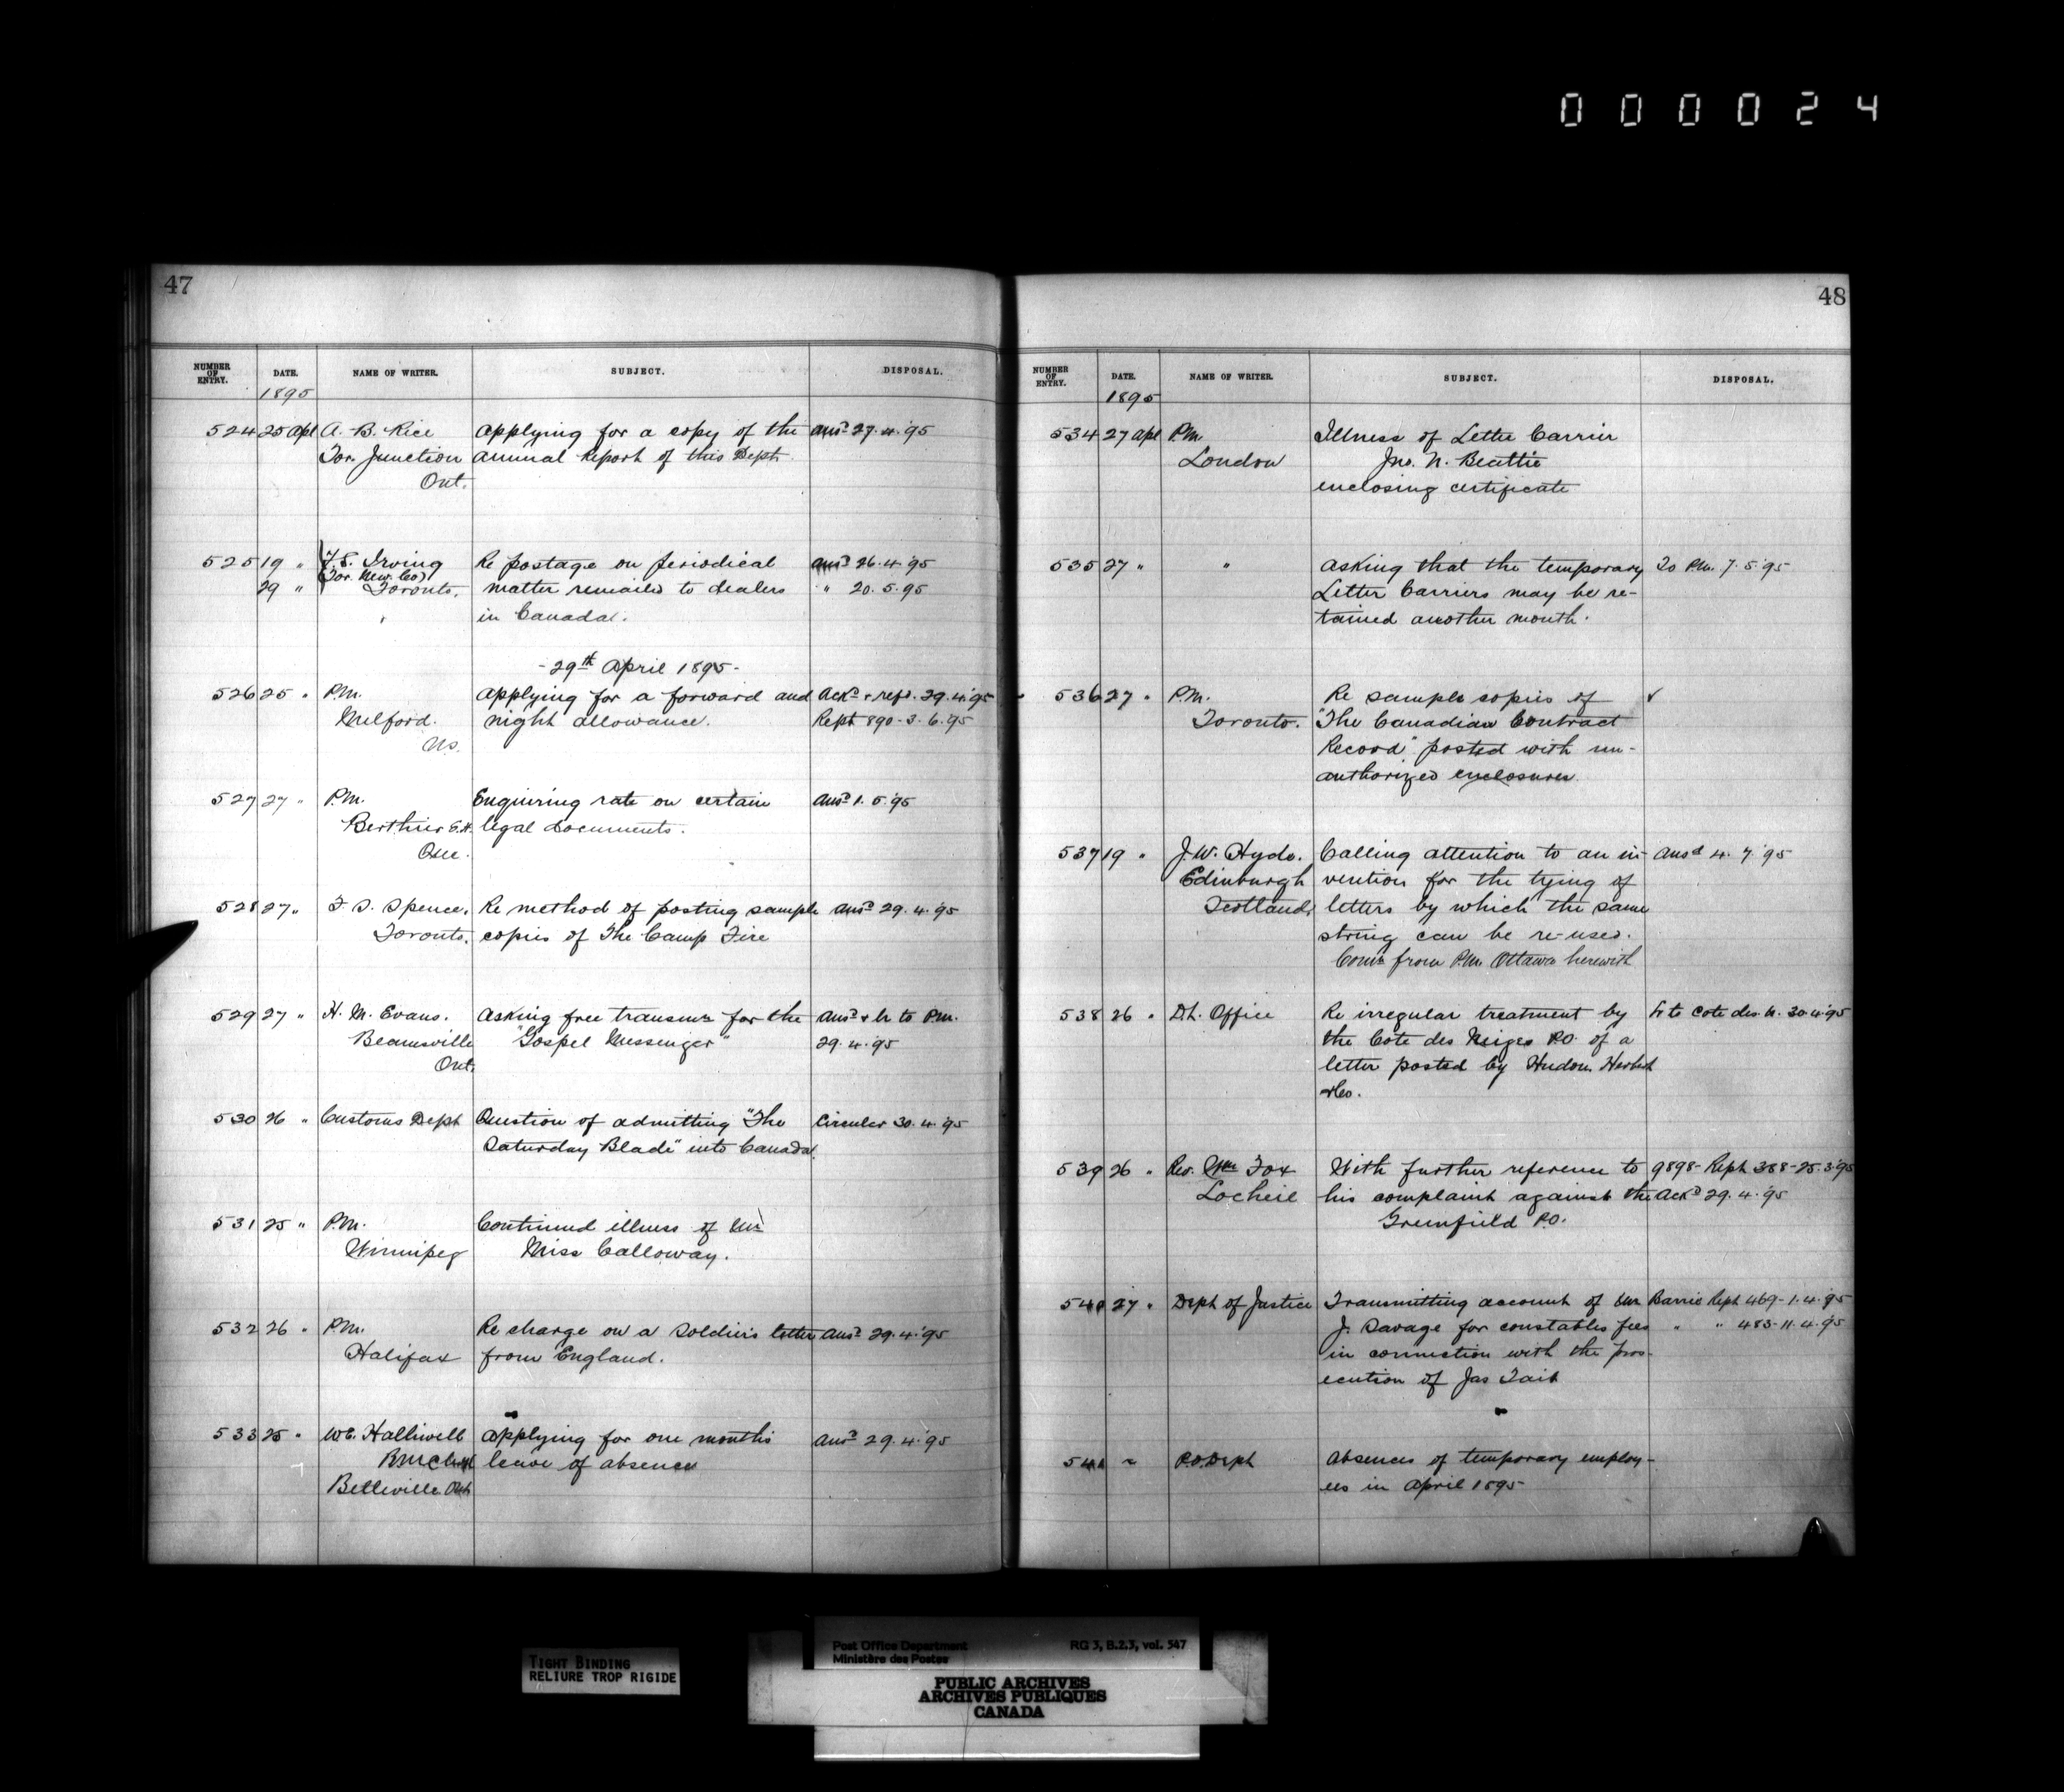 000024
47
NUMBER OF ENTRY. DATE. NAME OF WRITER. SUBJECT. DISPOSAL.
1895
524 25 Apl A. B. Rice Applying for a copy of the Ansd 27.4.'95
Tor. Junction Annual Report of this Dept.
Ont.
525 19 " Irving Re postage on periodical Ansd 26.4.'95
(Tor. New. Co)
29 " Toronto. matter remailed to dealers " 20.5.95
in Canada.
- 29th April 1895 -
526 25 " P.M. Applying for a forward and Ackd & refd. 29.4.'95
Melford. night allowance. Rept 890-3.6.'95
N.S.
527 27 " P.M. Enquiring rate on certain Ansd 1.5.'95
Berthier legal documents.
Que.
528 27 " F. S. Spence, Re method of posting sample Ansd 29.4.'95
Toronto. copies of The Camp Fire
529 27 " H. M. Evans. Asking free transmn for the Ansd & lr to P.M.
Beamsville "Gospel Messenger" 29.4.'95
Ont.
530 26 " Customs Dept Question of admitting "The Circular 30.4.'95
Saturday Blade" into Canada.
531 25 " P.M. Continued illness of
Winnipeg Miss Calloway.
532 26 " P.M. Re charge on a soldier's letter Ansd 29.4.'95
Halifax from England.
533 25 " W C. Halliwell Applying for one months Ansd 29.4.'95
leave of absence
Belleville Ont
48
NUMBER OF ENTRY. DATE. NAME OF WRITER. SUBJECT. DISPOSAL.
1895
534 27 Apl P.M. Illness of Letter Carrier
London Jno. N. Beattie
enclosing certificate
535 27 " " Asking that the temporary To P.M. 7.5.'95
Letter Carriers may be re-
tained another month.
536 27 " P.M. Re sample copies of ✓
Toronto. "The Canadian Contract
Record" posted with un-
authorized enclosures
537 19 " J. W. Hyde. Calling attention to an in- Ansd 4.7.'95
Edinburgh vention for the tying of
Scotland. letters by which the same
string can be re-used.
Comn from P.M. Ottawa herewith
538 26 " D.L. Office Re irregular treatment by Lr to Cote des N. 30.4.'95
the Cote des Neiges P.O. of a
letter posted by Hudon, Hebert
& Co.
539 26 " Rev. Wm Fox With further reference to 9898- Rept 388-25.3.'95
Locheil his complaint against the Ackd 29.4.'95
Greenfield P.O.
540 27 " Dept of Justice Transmitting account of Mr Barrie Rept 469-1.4.'95
J. Savage for constables fees " " 483-11.4.'95
in connection with the pros-
ecution of Jas Tait
541 ~ P.O. Dept Absences of temporary employ-
ees in April 1895
TIGHT BINDING
RELIURE TROP RIGIDE
Post Office Department RG 3, B.2.3, vol. 547
Ministère des Postes
PUBLIC ARCHIVES
ARCHIVES PUBLIQUES
CANADA